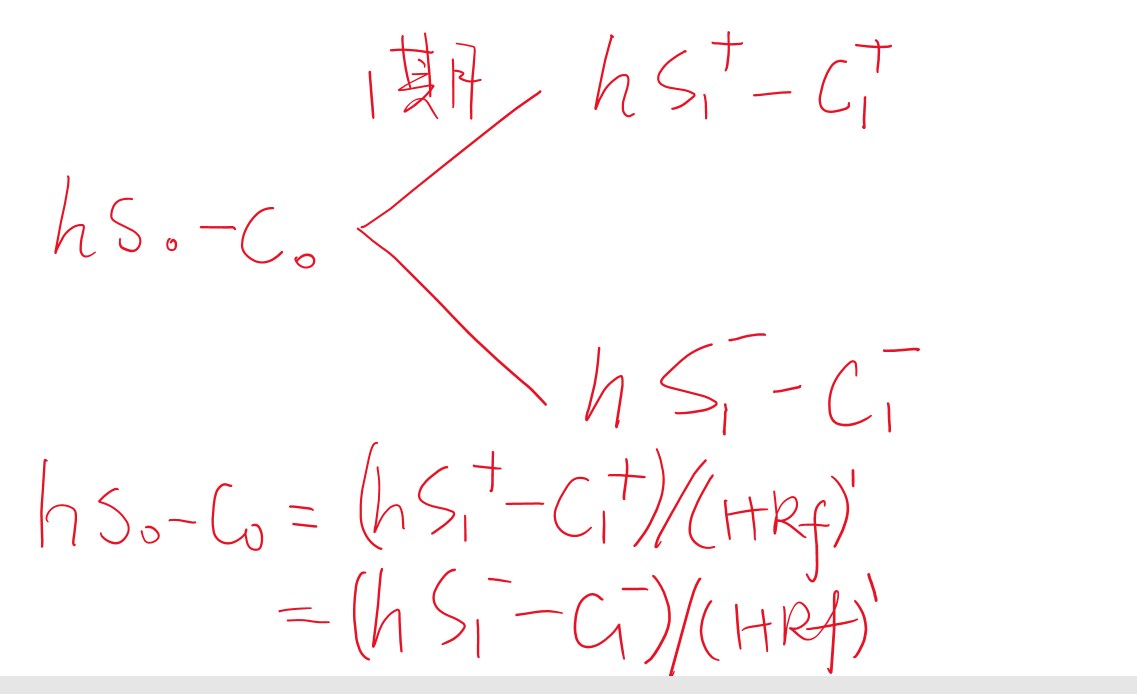 1期
hS₁⁺-C₁⁺
hS₀-C₀
hS₁⁻-C₁⁻
hS₀-C₀=(hS₁⁺-C₁⁺)/(1+Rf)¹
=(hS₁⁻-C₁⁻)/(1+Rf)¹